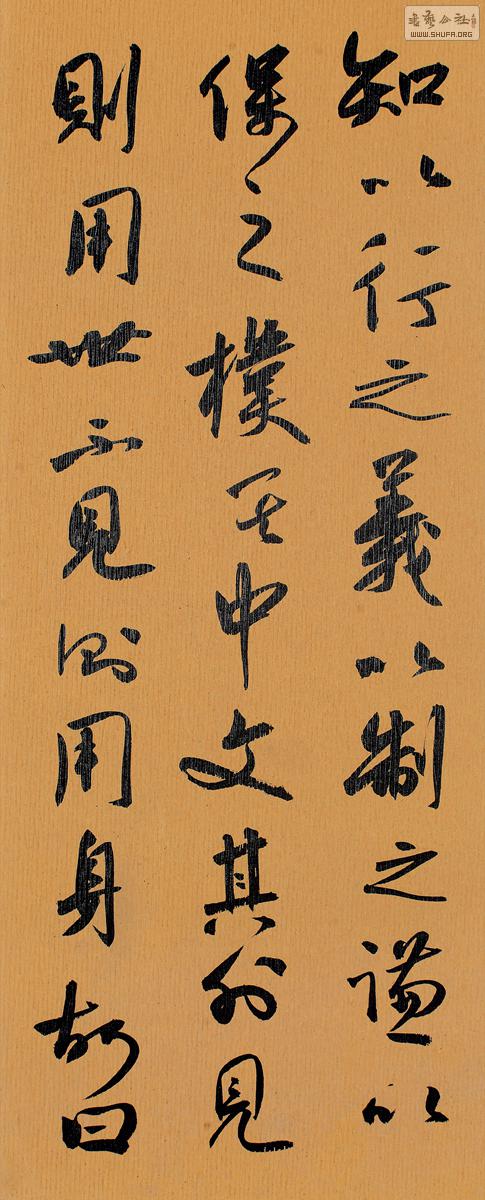 知以行之義以制之謙以
保之樸其中文其外見
則用世不見則用身故曰
書藝公社
WWW.SHUFA.ORG